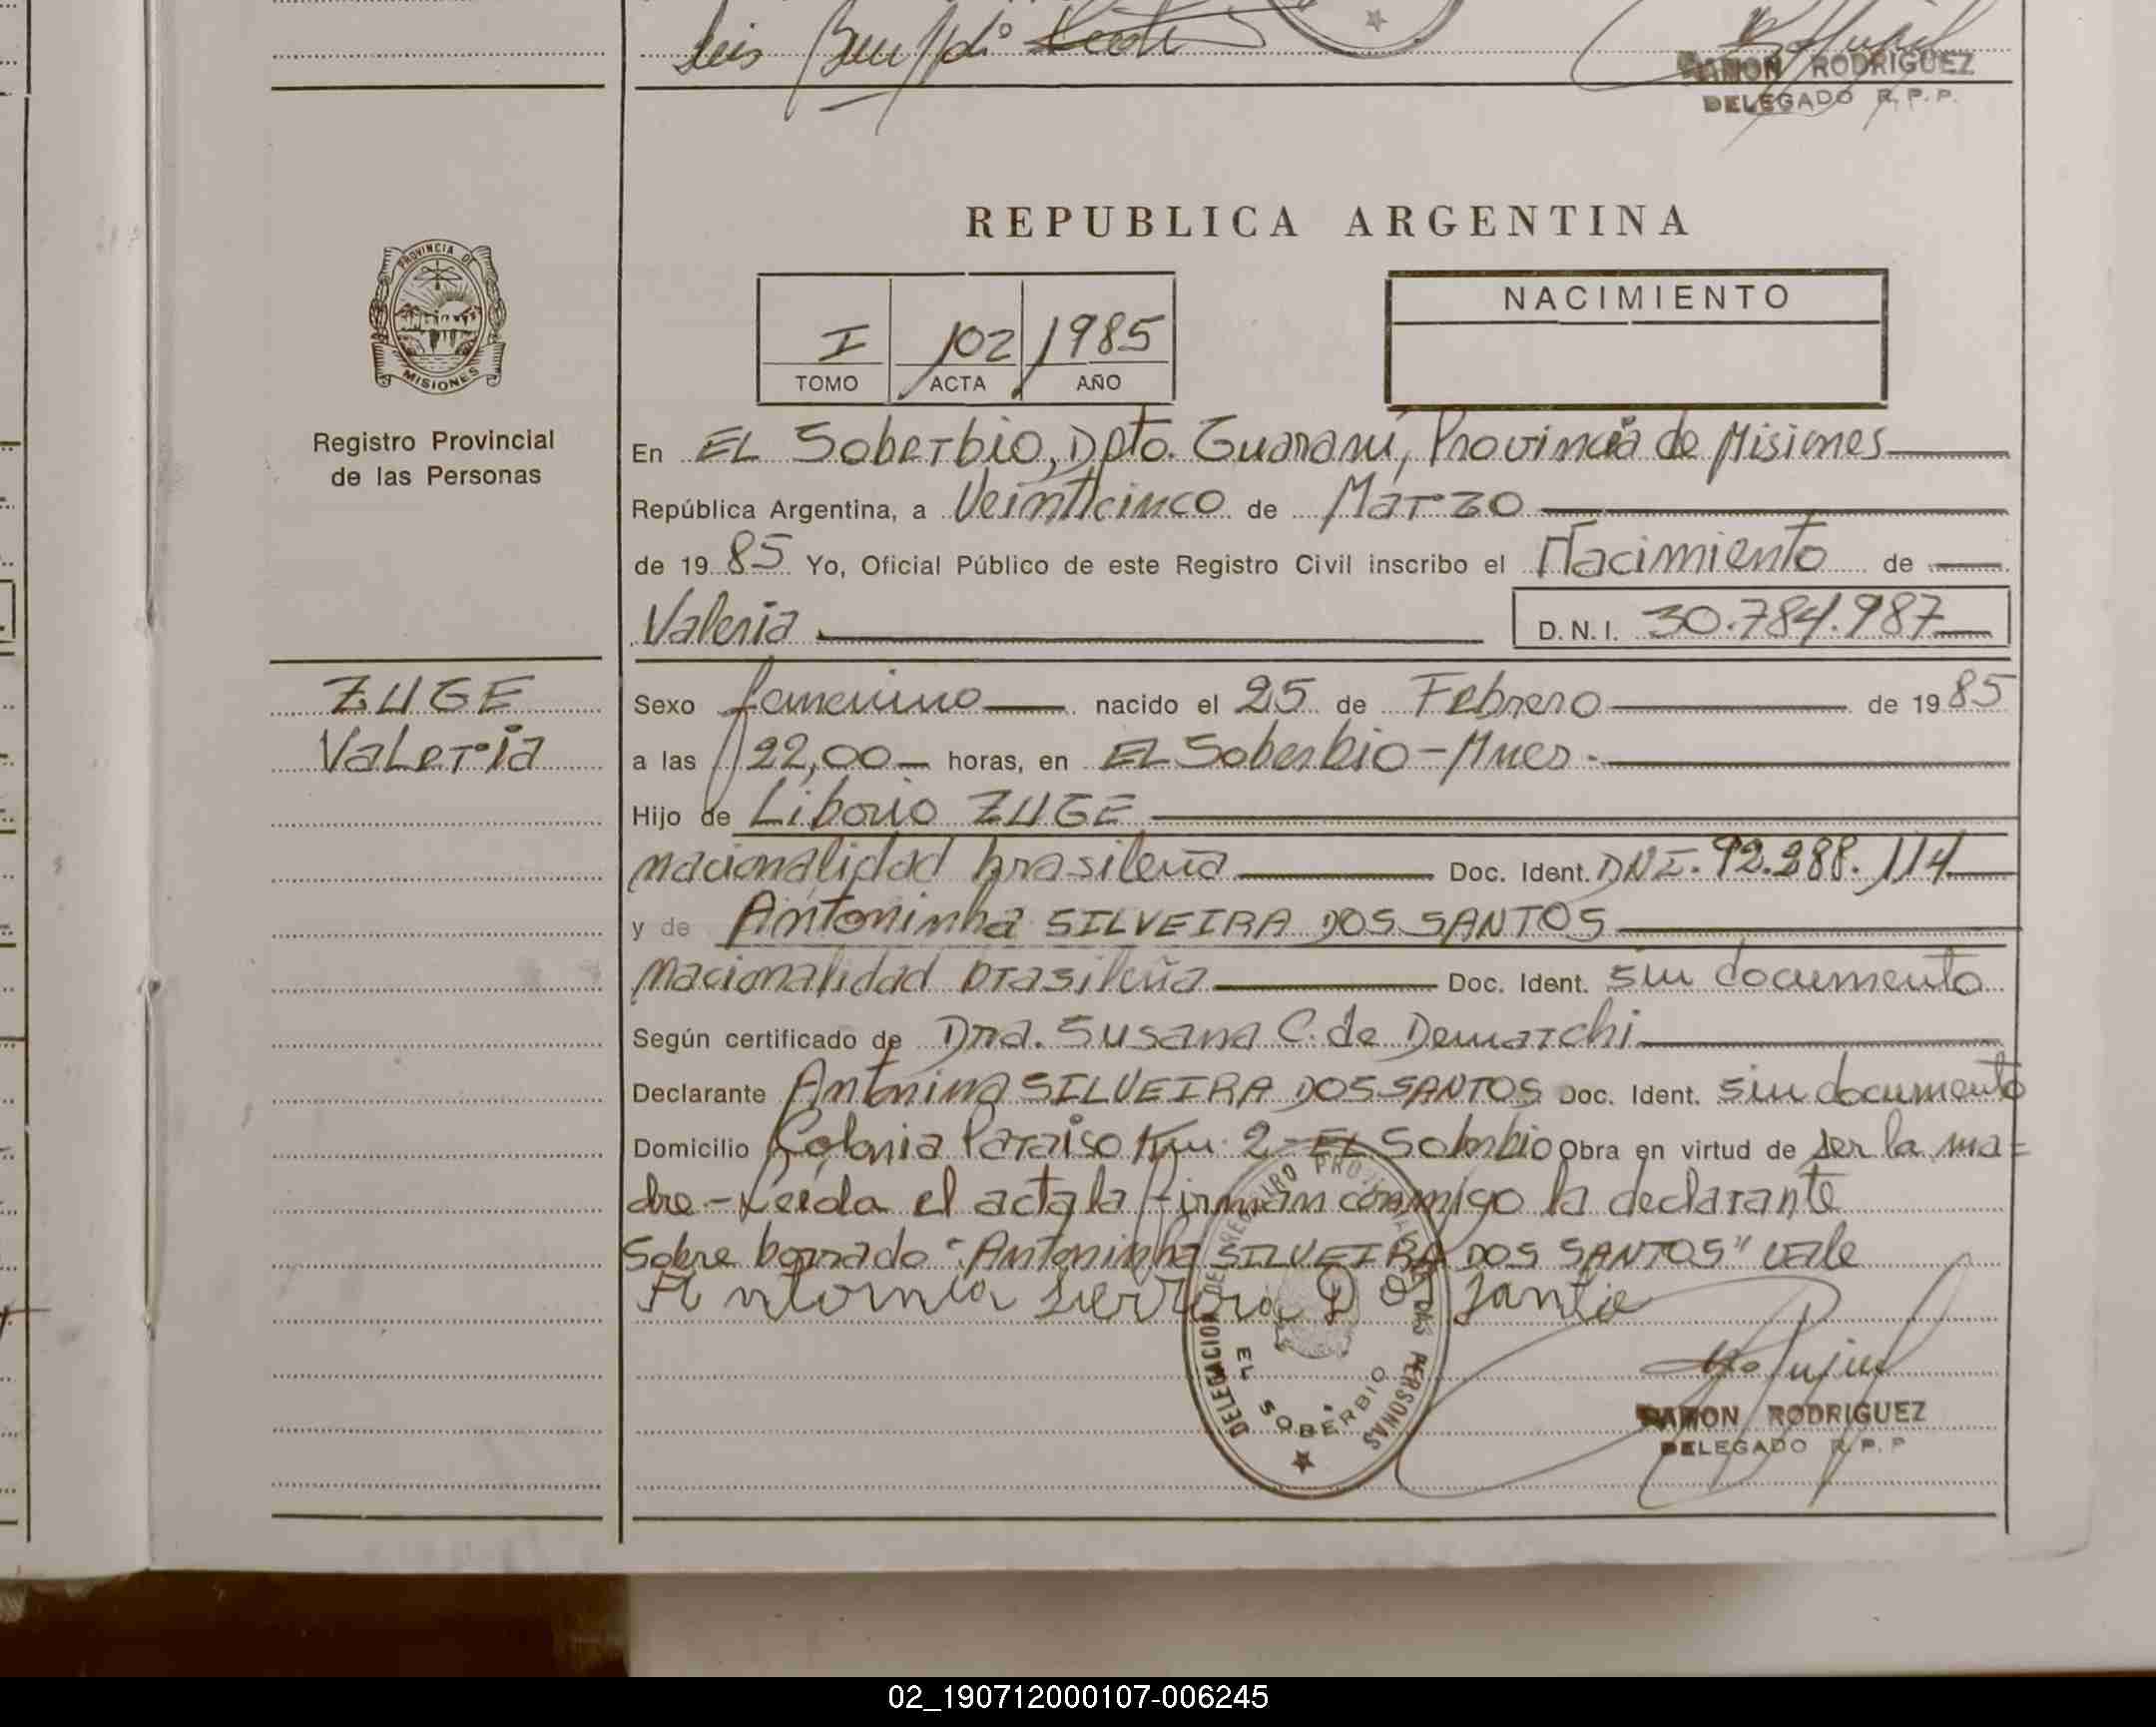 Luis
RAMON RODRIGUEZ
DELEGADO R.P.P.
REPUBLICA ARGENTINA
PROVINCIA DE
MISIONES
Registro Provincial
de las Personas
I 102 1985
TOMO ACTA AÑO
NACIMIENTO
En EL Soberbio, Dpto. Guaraní, Provincia de Misiones
República Argentina, a Veinticinco de Marzo
de 1985 Yo, Oficial Público de este Registro Civil inscribo el Nacimiento de
Valeria D.N.I. 30.784.987
ZUGE
Valeria
Sexo femenino nacido el 25 de Febrero de 1985
a las 22,00 horas, en EL Soberbio - Mnes.
Hijo de Liborio ZUGE
nacionalidad brasileña Doc. Ident. DNI. 92.288.114
y de Antoninha SILVEIRA DOS SANTOS
nacionalidad brasileña Doc. Ident. sin documento
Según certificado de Dra. Susana C. de Demarchi
Declarante Antonina SILVEIRA DOS SANTOS Doc. Ident. sin documento
Domicilio Colonia Paraiso Km. 2 - EL Soberbio Obra en virtud de ser la ma=
dre - Leída el acta la firman conmigo la declarante
Sobre borrado "Antoninha SILVEIRA DOS SANTOS" vale
DELEGACION DE REGISTRO PROVINCIAL DE LAS PERSONAS
EL SOBERBIO
RAMON RODRIGUEZ
DELEGADO R.P.P
02_190712000107-006245